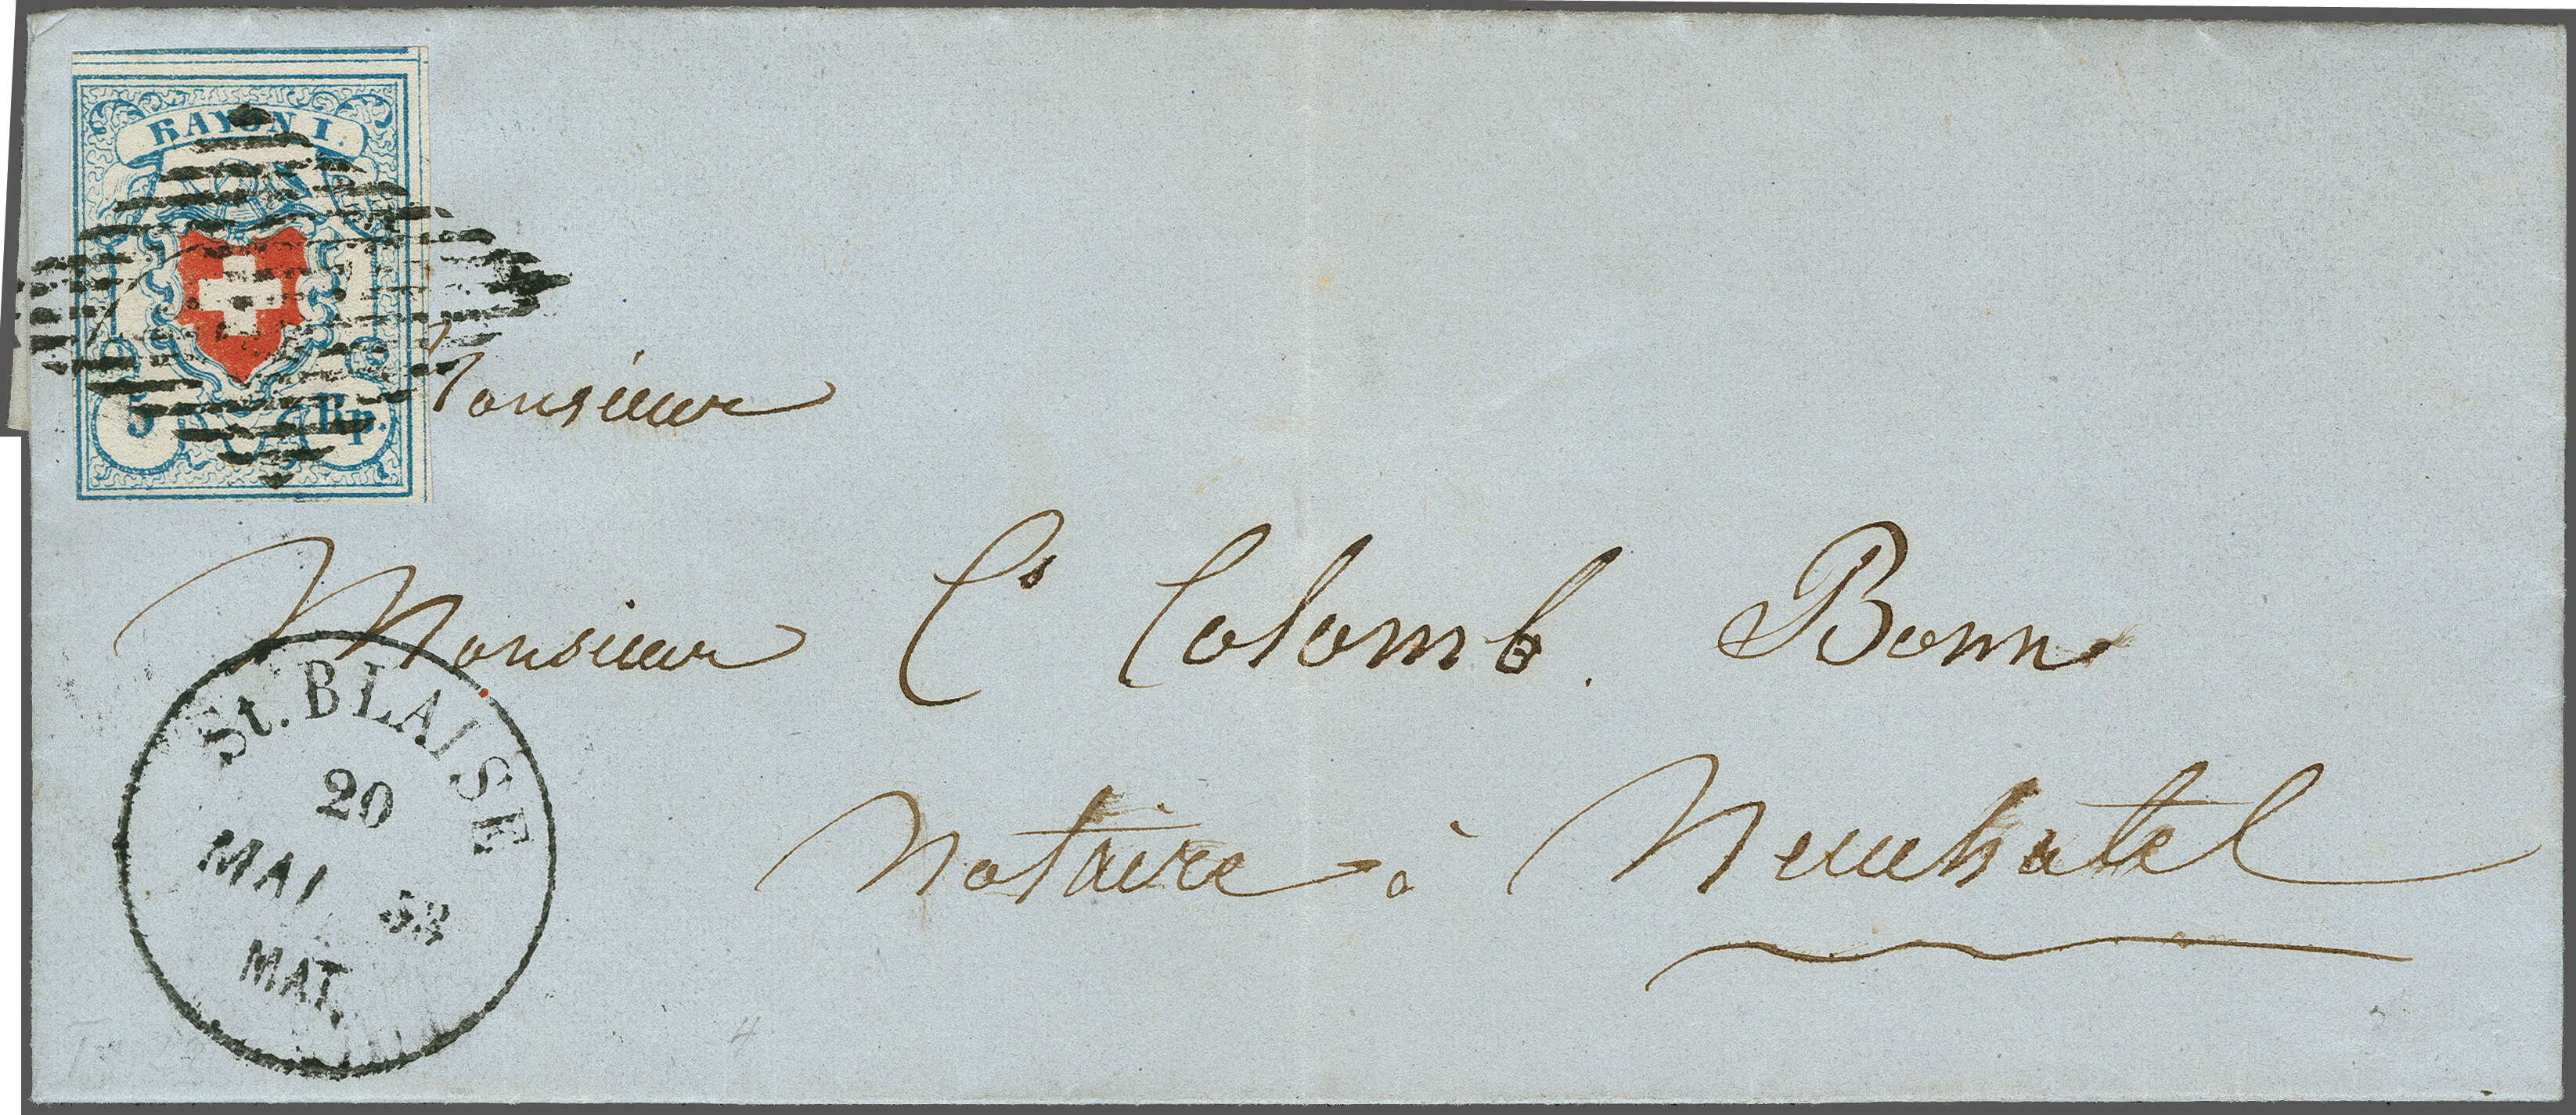 RAYON I.
5 Rp.
Monsieur
Monsieur Cs Colomb. Bonn
Notaire à Neuchatel
St. BLAISE
20
MAI 53
MAT.